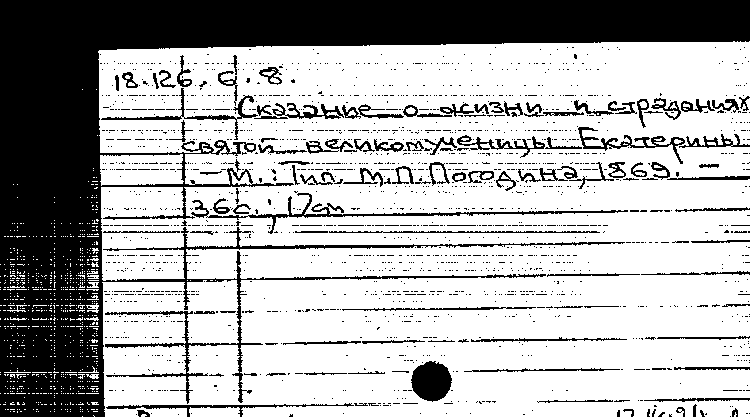 18.126.6.8.
Сказание о жизни и страданиях
святой великомученицы Екатерины
.— М.: Тип. М.П. Погодина, 1869. —
36с.; 17см